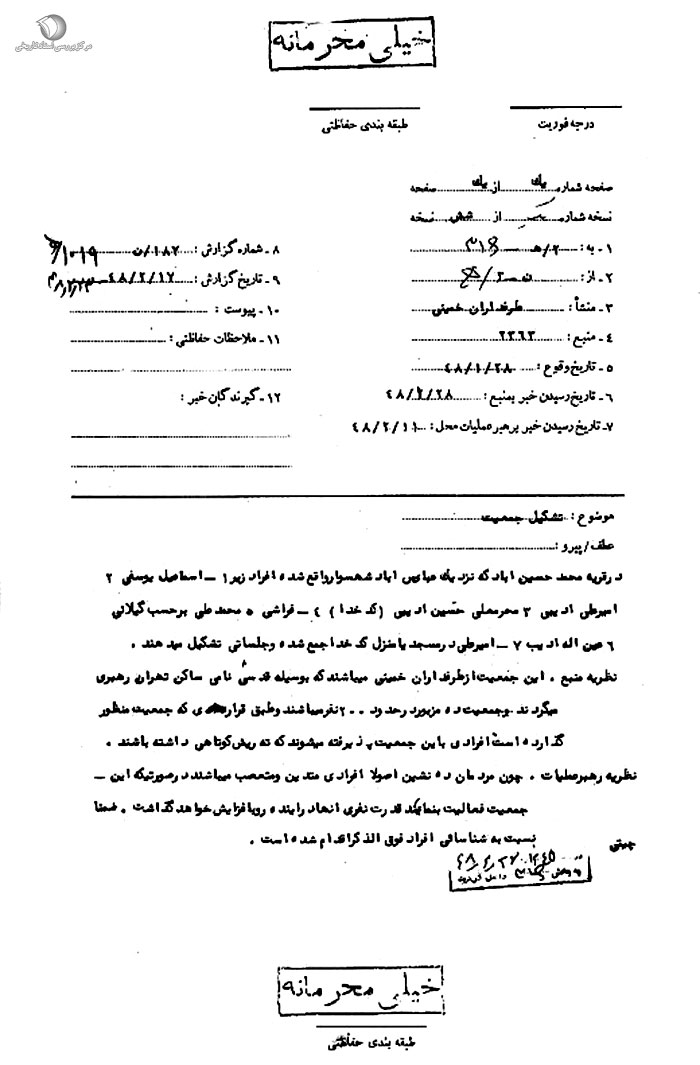 مرکز بررسی اسناد تاریخی
خیلی محرمانه
درجه فوریت
طبقه بندی حفاظتی
صفحه شماره یک از یک صفحه
نسخه شماره از شش نسخه
۱ - به : ۲/هـ ۳۱۶
۲ - از :
۳ - منشأ : طرفداران خمینی
۴ - منبع : ۲۳۶۳
۵ - تاریخ وقوع : ۴۸/۱/۲۸
۶ - تاریخ رسیدن خبر بمنبع : ۴۸/۱/۲۸
۷ - تاریخ رسیدن خبر برهبر عملیات محل : ۴۸/۲/۱۱
۸ - شماره گزارش : ۱۸۷/ن
۹ - تاریخ گزارش : ۴۸/۲/۱۷
۱۰ - پیوست :
۱۱ - ملاحظات حفاظتی :
۱۲ - گیرندگان خبر :
موضوع : تشکیل جمعیت
عطف/پیرو :
درقریه محمد حسین اباد که نزدیک عباس اباد شهسوار واقع شده افراد زیر ۱ - اسماعیل یوسفی ۲
امیرعلی ادیبی ۳ محرمعلی حسین ادیبی ( کدخدا ) ٤ - فراشی ۵ محمد علی برحسب گیلانی
۶ عین اله ادیب ۷ - امیرعلی درمسجد یا منزل کدخدا جمع شده وجلساتی تشکیل میدهند .
نظریه منبع . این جمعیت ازطرفداران خمینی میباشند که بوسیله قدسی نامی ساکن تهران رهبری
میگردند وجمعیت ده مزبور درحدود ۲۰۰ نفرمیباشند وطبق قراردادی که جمعیت منظور
گذارده است افرادی باین جمعیت پذیرفته میشوند که ته ریش کوتاهی داشته باشند .
نظریه رهبرعملیات . چون مردمان ده نشین اصولا افرادی متدین ومتعصب میباشند درصورتیکه این -
جمعیت فعالیت بنماید قدرت نفری انها درآینده روبافزایش خواهد گذاشت . ضمنا
نسبت به شناسائی افراد فوق الذکر اقدام شده است .
خیلی محرمانه
طبقه بندی حفاظتی